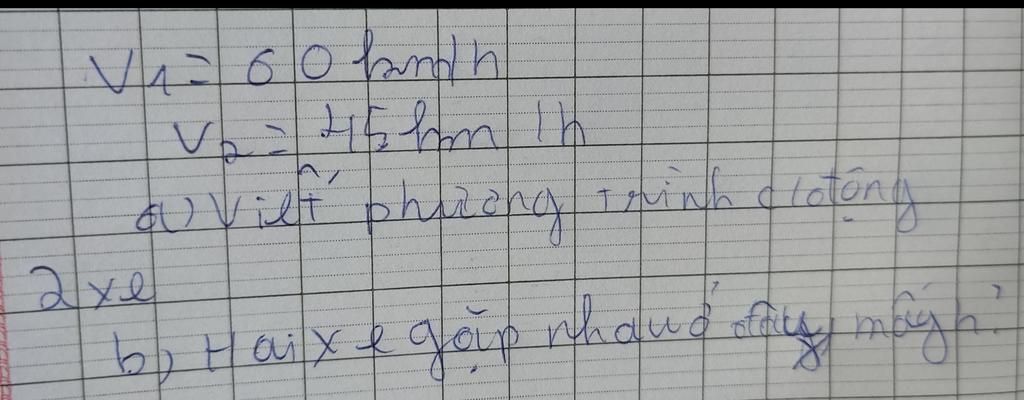 V1 = 60 km/h
V2 = 45 km/h
a) Viết phương trình cđ động
2 xe
b, Hai xe gặp nhau ở đâu, mấy h?